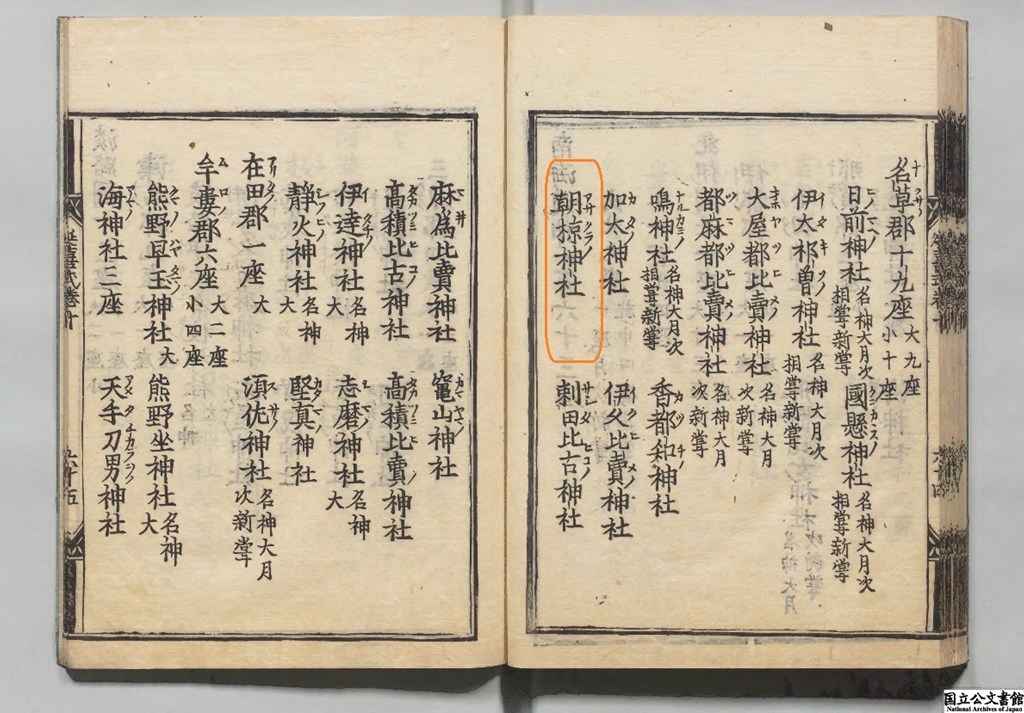 名草郡十九座大九座小十座
日前神社名神大月次相嘗新嘗 國懸神社名神大月次相嘗新嘗
伊太祁曽神社名神大月次相嘗新嘗
大屋都比賣神社名神大月次新嘗
都麻都比賣神社名神大月次新嘗
鳴神社名神大月次相嘗新嘗 香都知神社
加太神社 伊久比賣神社
朝椋神社 刺田比古神社
麻爲比賣神社 竃山神社
髙積比古神社 髙積比賣神社
伊達神社名神大 志磨神社名神大
静火神社名神大 堅真神社
在田郡一座大 須佐神社名神大月次新嘗
牟婁郡六座大二座小四座
熊野早玉神社大 熊野坐神社名神大
海神社三座 天手力男神社
六十四
六十五
国立公文書館
National Archives of Japan